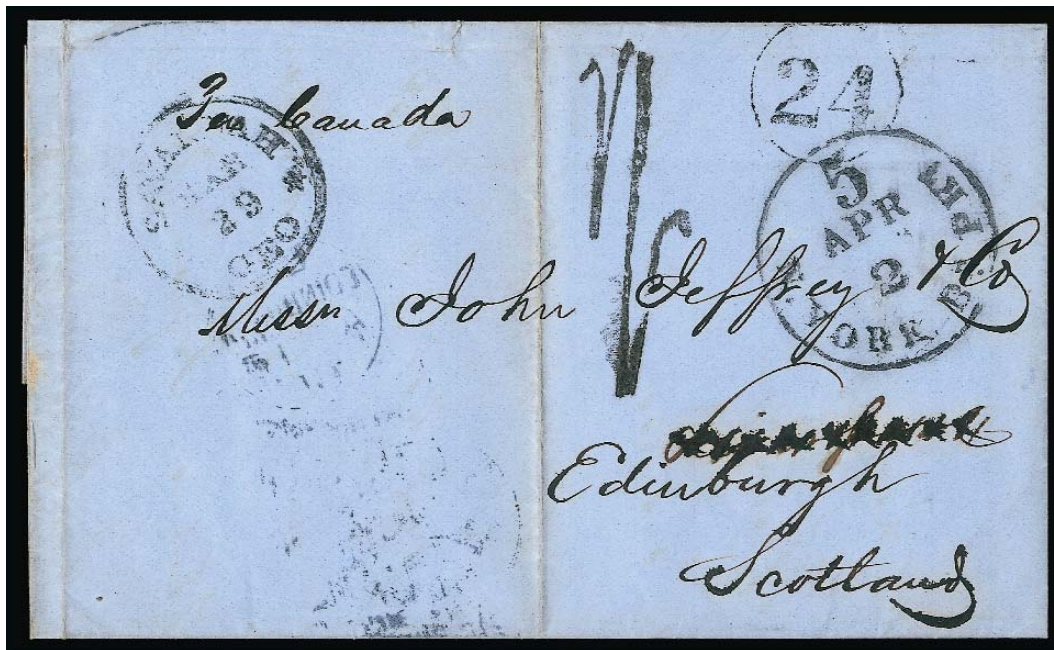 Per Canada
SAVANNAH * GEO
MAR
29
1/
24
5
N. YORK BR. PKT
APR
2
Messrs John Jeffrey & Co
Edinburgh
Scotland